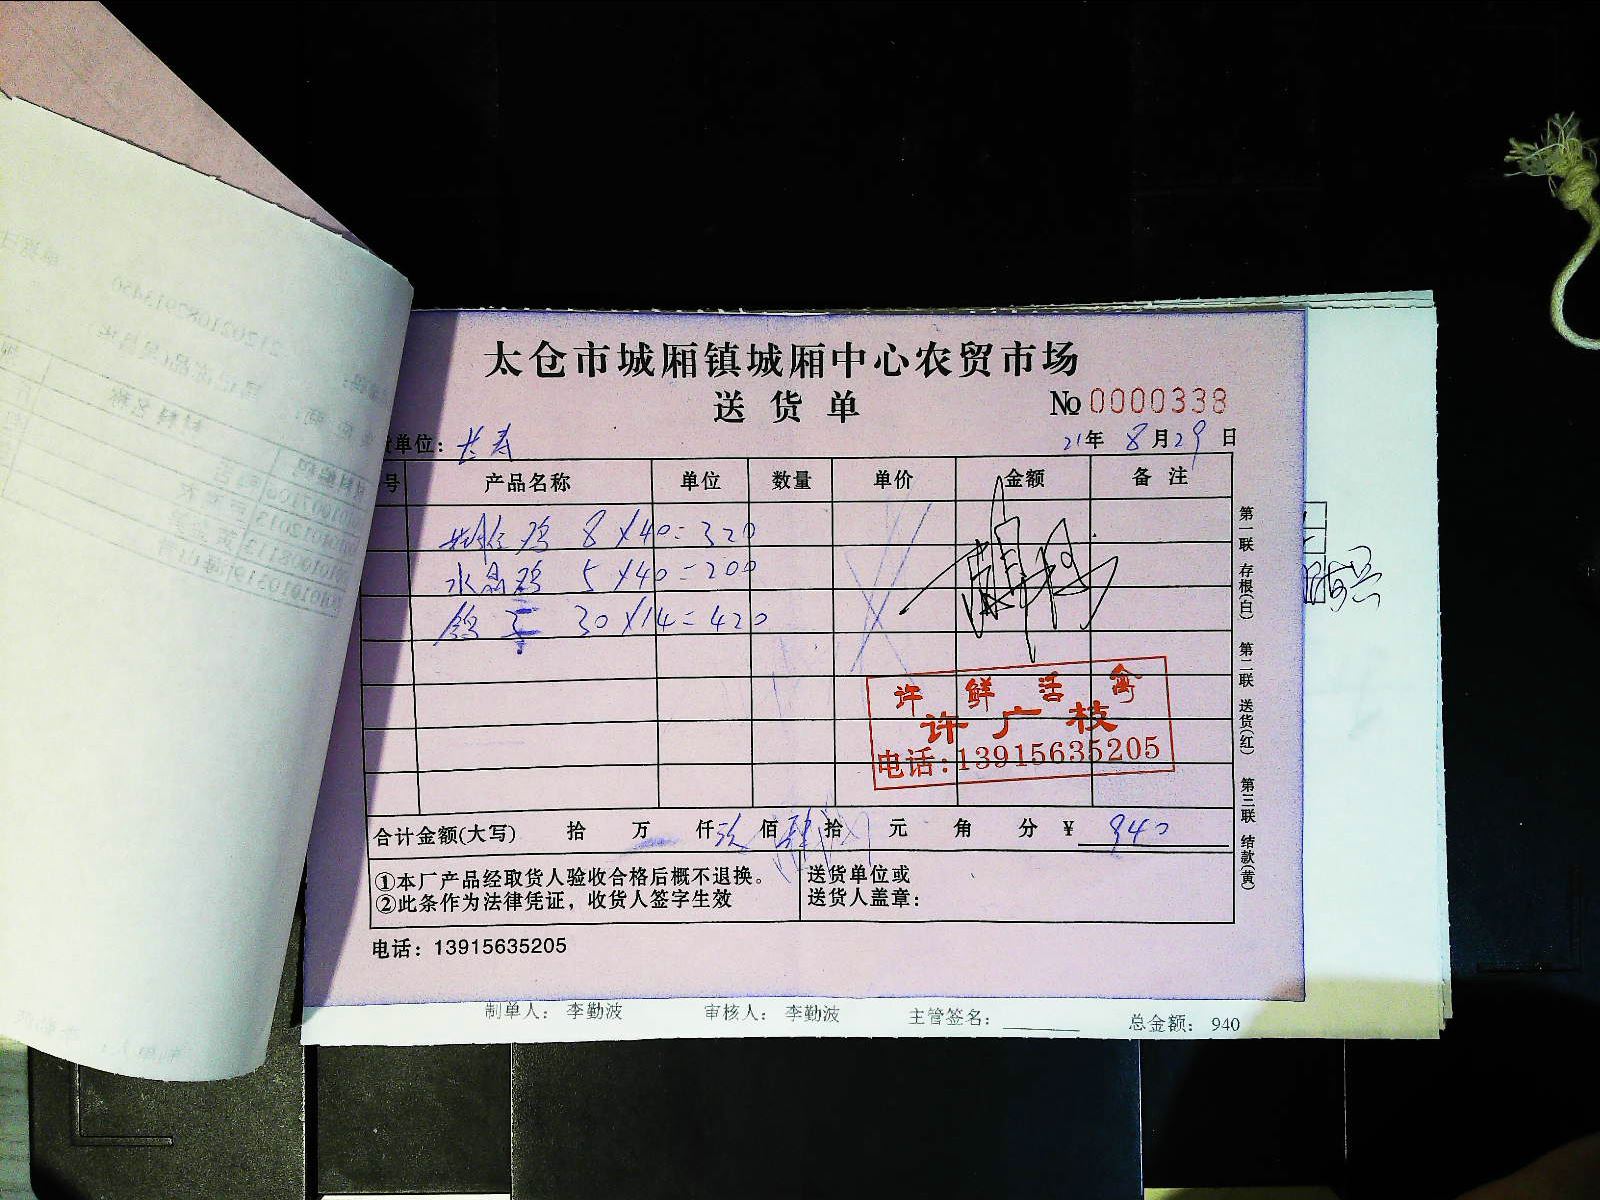 太仓市城厢镇城厢中心农贸市场
送货单
№ 0000338
单位: 长寿
21年 8月29日
号 产品名称 单位 数量 单价 金额 备注
鸡 8×40=320
水晶鸡 5×40=200
鸽 30×14=420
许鲜活禽
许广枝
电话:13915635205
合计金额(大写) 拾 万 仟 玖 佰 肆 拾 元 角 分 ¥ 940
①本厂产品经取货人验收合格后概不退换。
②此条作为法律凭证，收货人签字生效
送货单位或
送货人盖章:
电话: 13915635205
第一联 存根(白) 第二联 送货(红) 第三联 结款(黄)
制单人: 李勤波 审核人: 李勤波 主管签名: 总金额: 940